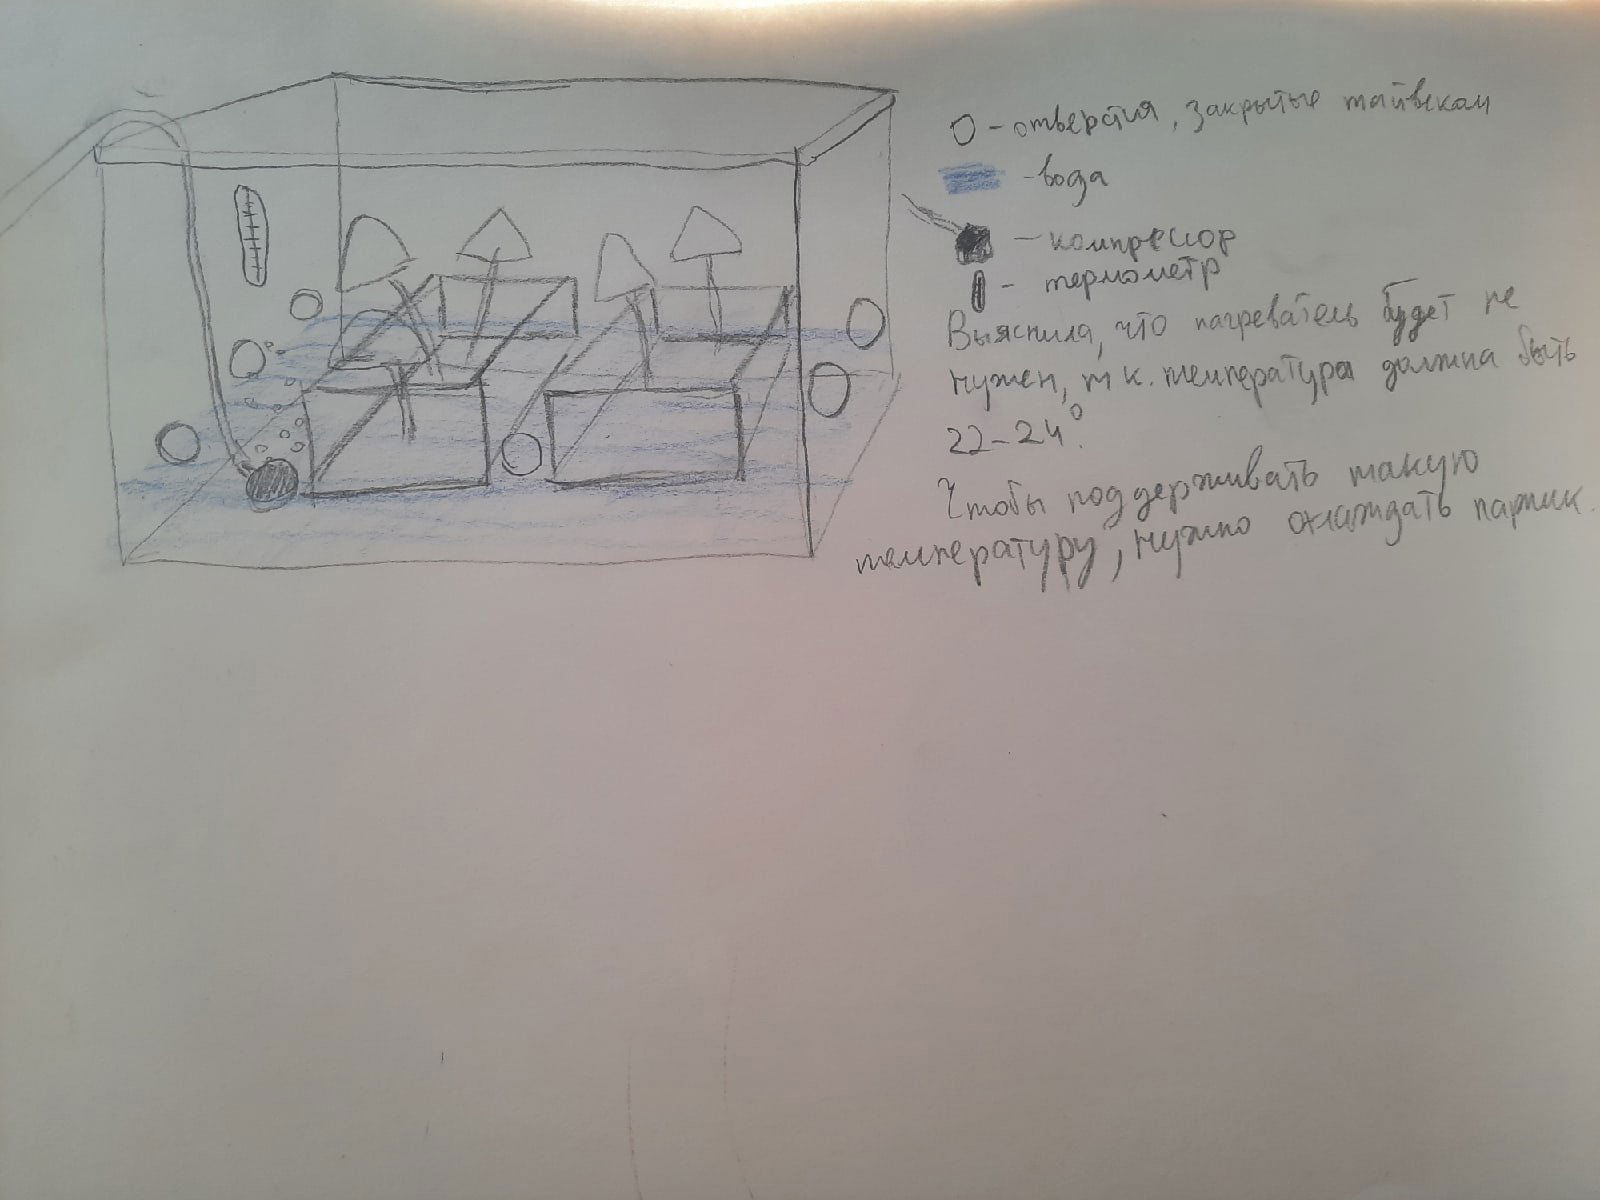 О - отверстия, закрытые тайвеком
- вода
- компрессор
- термометр
Выяснила, что нагреватель будет не
нужен, т к. температура должна быть
22-24°.
Чтобы поддерживать такую
температуру, нужно охлаждать парник.